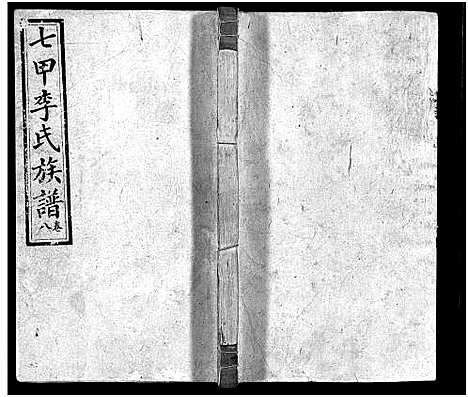 七甲李氏族譜
卷八